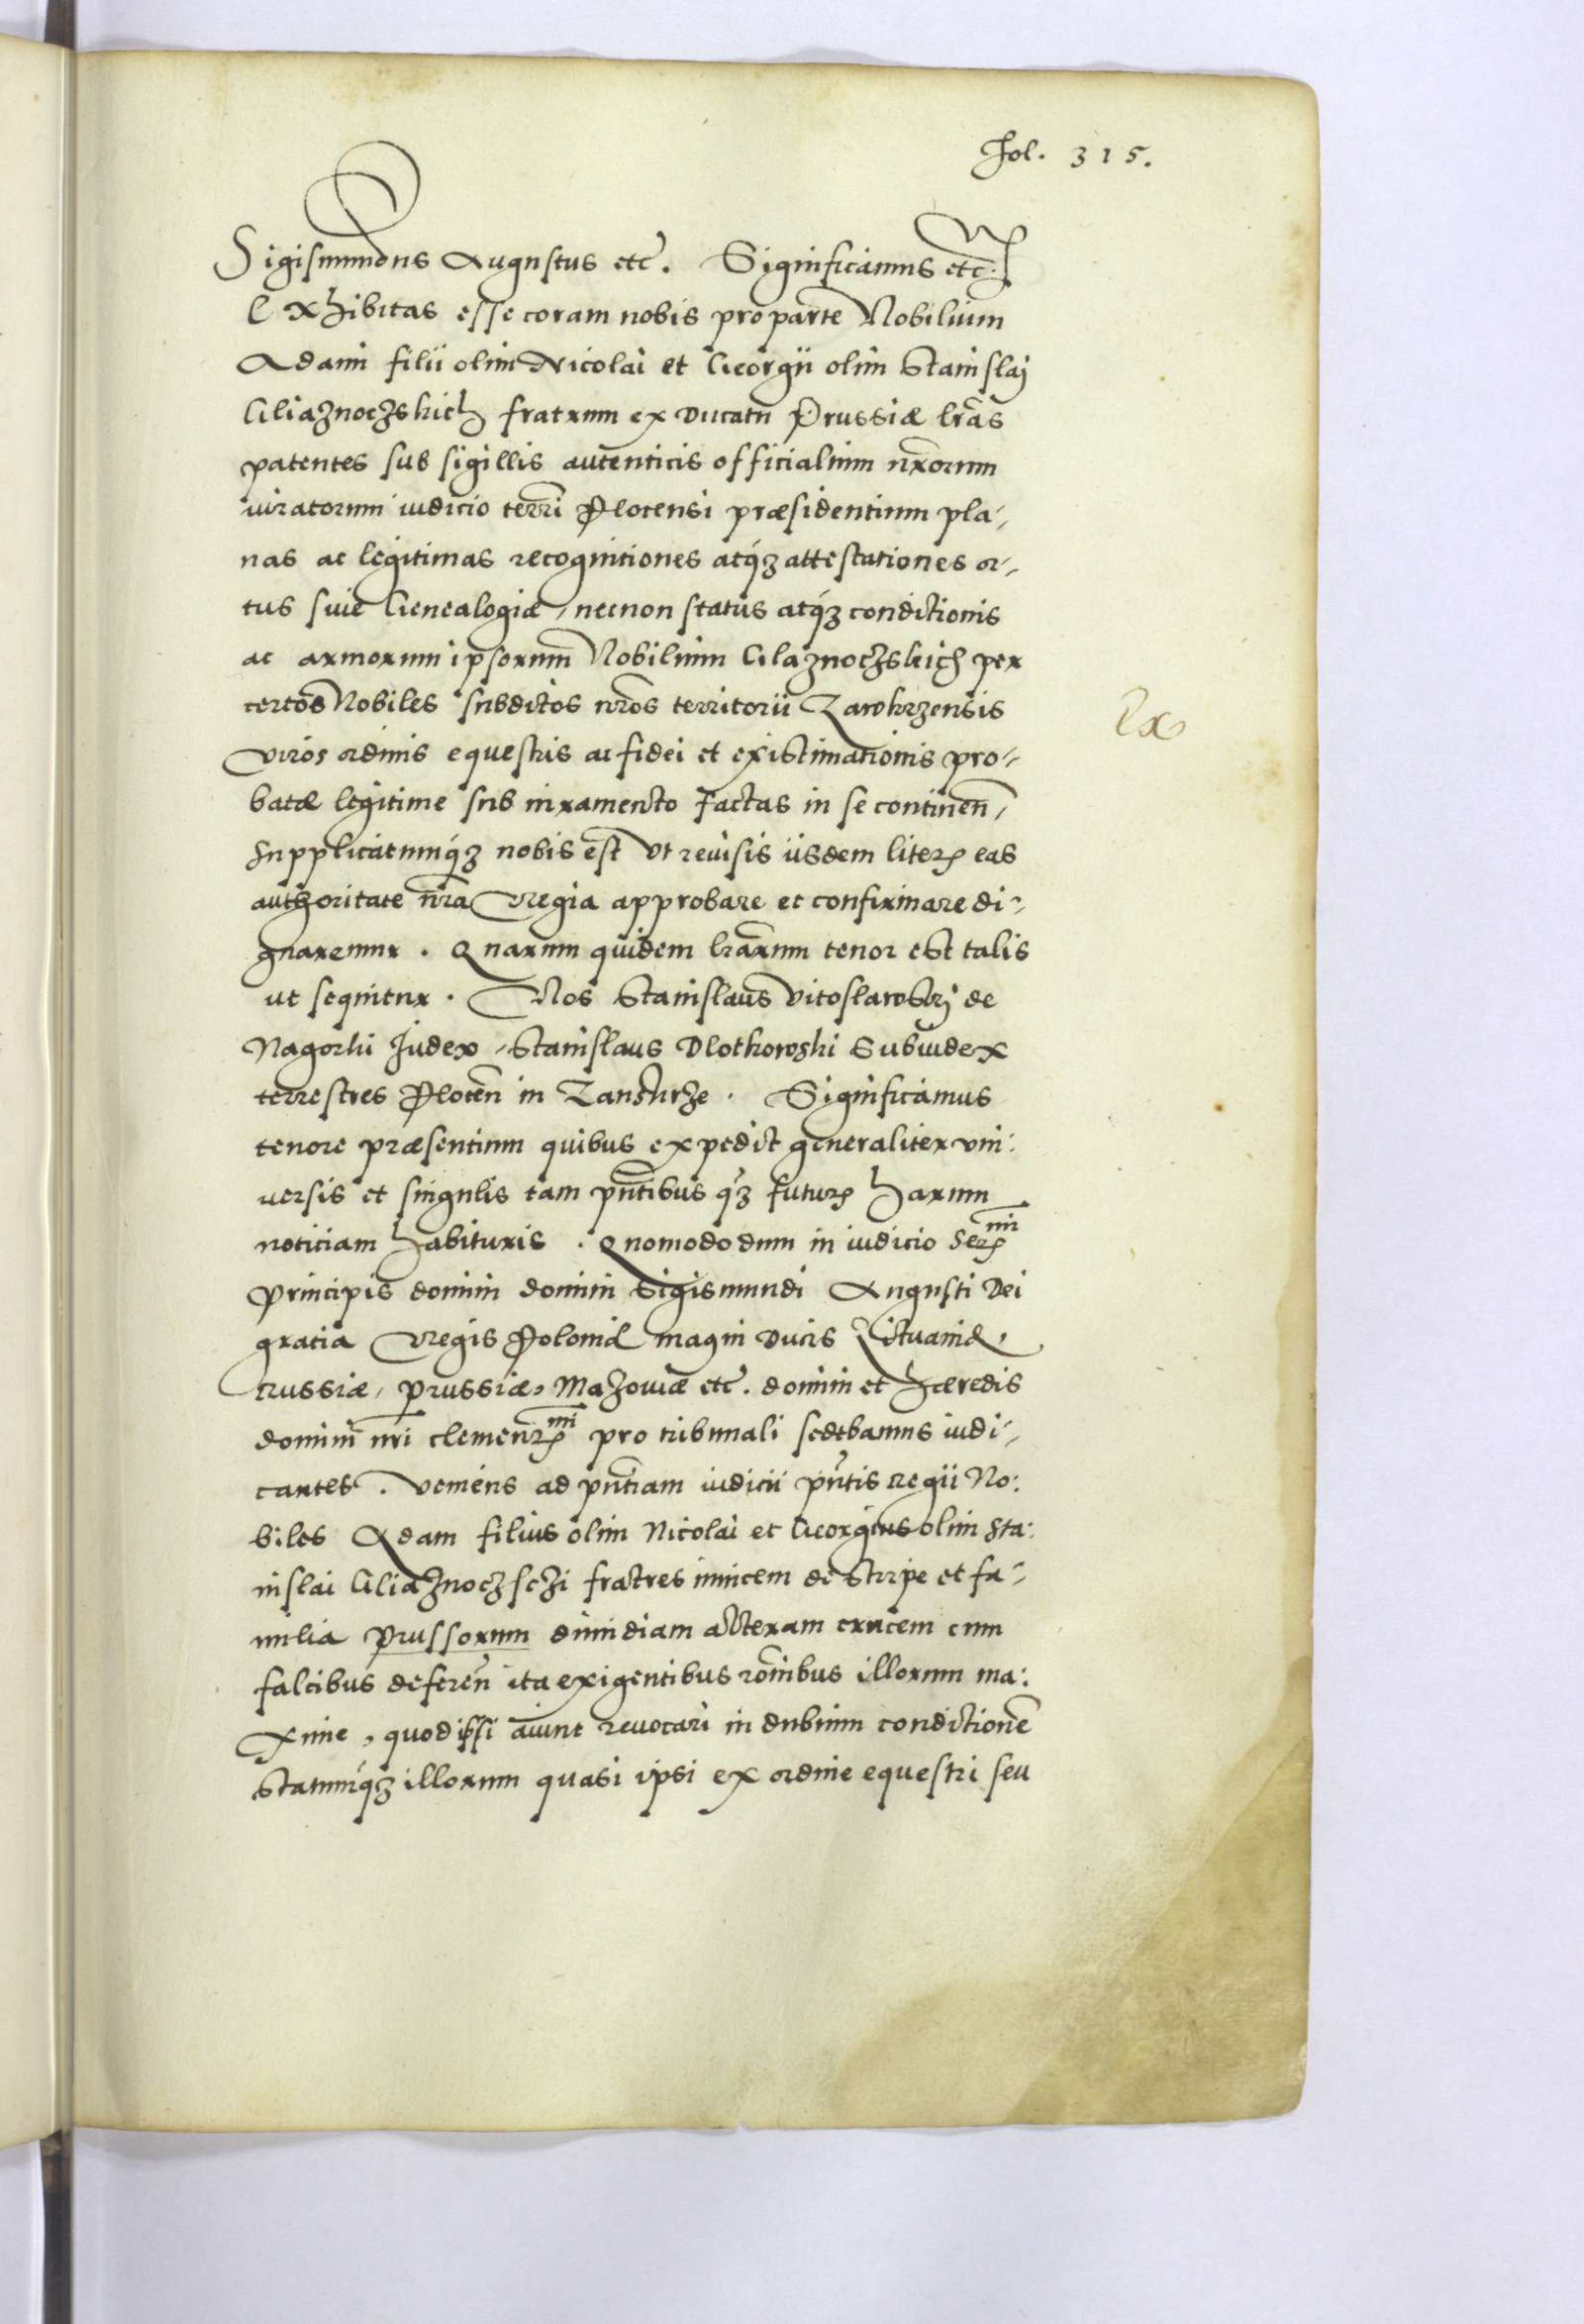 Fol. 315.
Sigismundus Augustus etc. Significamus etc.
Exhibitas esse coram nobis pro parte Nobilium
Adami filii olim Nicolai et Georgii olim Stanislaj
Gliaznoczskich fratrum ex Ducatu Prussiæ lrãs
patentes sub sigillis autenticis officialium nrõrum
iuratorum iudicio terrĩ Plocensi præsidentium pla-
nas ac legitimas recognitiones atq́ꝫ attestationes or-
tus suie Genealogiæ, necnon status atq́ꝫ conditionis
ac armorum ipsorum Nobilium Glaznoczskich per
certos Nobiles subditos nrõs territorii Zawkrzensis
viros ordinis equestris ac fidei et existimationis pro-
batæ legitime sub iuramento factas in se continen̄,
Supplicatumq́ꝫ nobis est vt reuisis iisdem literꝭ eas
authoritate nrã Regia approbare et confirmare di-
gnaremur. Quarum quidem lrãrum tenor est talis
ut sequitur. Nos Stanislaus Vitoslawskj de
Nagorki Judex, Stanislaus Dlotkowski Subiudex
terrestres Plocen̄ in Zauskrze. Significamus
tenore præsentium quibus expedit generaliter vni:
uersis et singulis tam pñtibus q́ꝫ futurꝭ harum
noticiam habituris. Quomodo dum in iudicio Serꝭmi
Principis domini domini Sigismundi Augusti Dei
gratia Regis Poloniæ magni Ducis Lituaniæ,
Russiæ, Prussiæ, Mazouiæ etc. domini et hæredis
domini nrĩ clementꝭmi pro tribunali sedebamus iudi-
cantes. Veniens ad pñtiam iudicii pñtis regii No:
biles Adam filius olim Nicolai et Georgius olim Sta:
nislai Gliaznoczsczi fratres inuicem de stirpe et fa-
milia Prussorum dimidiam alteram crucem cum
falcibus deferen̄ ita exigentibus rõnibus illorum ma:
xime, quod ipsi aiunt reuocari in dubium conditionẽ
statumq́ꝫ illorum quasi ipsi ex ordine equestri seu
Ex